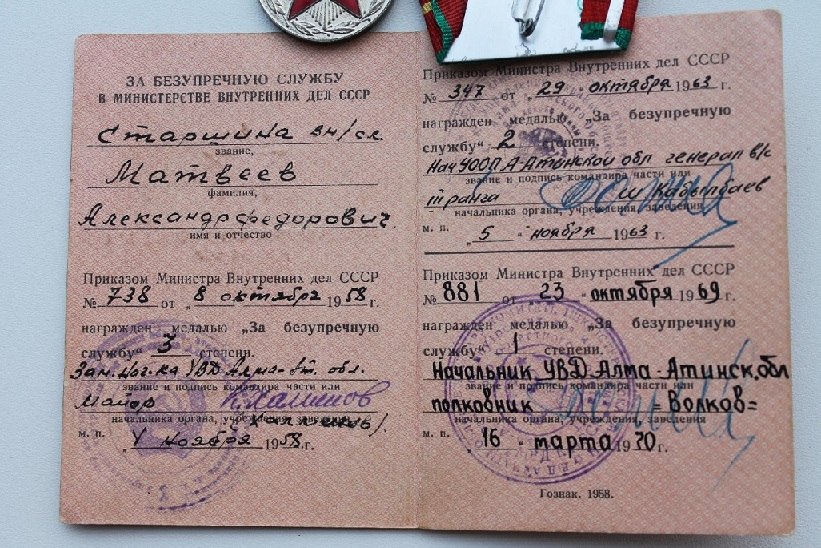 ЗА БЕЗУПРЕЧНУЮ СЛУЖБУ
В МИНИСТЕРСТВЕ ВНУТРЕННИХ ДЕЛ СССР
Старшина вн/сл.
звание,
Матвеев
фамилия,
Александр Федорович
имя и отчество
Приказом Министра Внутренних дел СССР
№ 738 от „8 октября 1958 г.
награжден медалью „За безупречную
службу“ 3 степени.
Зам. Нач-ка УВД Алма-Ат. обл.
звание и подпись командира части или
Майор
начальника органа, учреждения, заведения
м. п. „1 ноября 1958 г.
Приказом Министра Внутренних дел СССР
№ 347 от „29 октября 1963
награжден медалью „За безупречную
службу“ 2 степени.
Нач УООП А-Атинской обл генерал в/с
звание и подпись командира части или
III ранга Кабылбаев
начальника органа, учреждения, заведения
м. п. „5 ноября 1963 г.
Приказом Министра Внутренних дел СССР
№ 881 от 23 октября 1969 г.
награжден медалью „За безупречную
службу“ 1 степени.
Начальник УВД Алма-Атинск. обл
звание и подпись командира части или
полковник =Волков=
начальника органа, учреждения, заведения
м. п. „16 марта 1970 г.
Гознак. 1958.